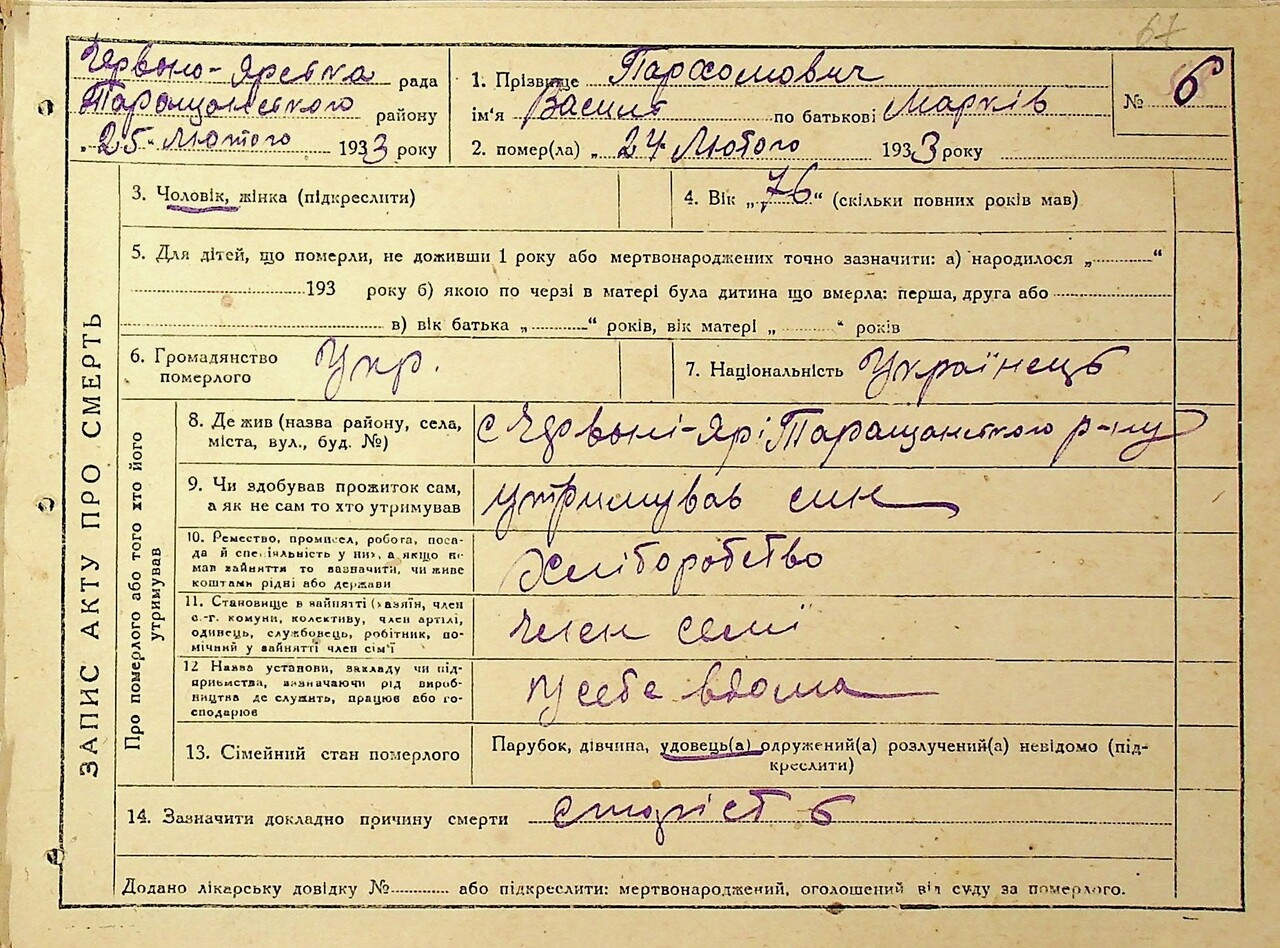 67
Червоно-Ярська рада
Таращанського району
„25“ Лютого 1933 року
1. Прізвище Пархомович
ім'я Василь по батькові Марків
2. помер(ла) „24 Лютого 1933 року
№ 6
ЗАПИС АКТУ ПРО СМЕРТЬ
3. Чоловік, жінка (підкреслити)
4. Вік „76“ (скільки повних років мав)
5. Для дітей, що померли, не доживши 1 року або мертвонароджених точно зазначити: а) народилося „..........“
..........193 року б) якою по черзі в матері була дитина що вмерла: перша, друга або..........
.......... в) вік батька „..........“ років, вік матері „..........“ років
6. Громадянство
померлого
Укр.
7. Національність Українець
Про померлого або того хто його
утримував
8. Де жив (назва району, села,
міста, вул., буд. №)
с Червоні-Ярі Таращанського р-ну
9. Чи здобував прожиток сам,
а як не сам то хто утримував
утримував син
10. Ремество, промисел, робота, поса-
да й спеціяльність у них, а якщо не
мав зайняття то зазначити, чи живе
коштами рідні або держави
Хліборобство
11. Становище в зайнятті (хазяїн, член
с.-г. комуни, колективу, член артілі,
одивець, службовець, робітник, по-
мічний у зайнятті член сім'ї
член семї
12 Назва установи, закладу чи під-
приємства, зазначаючи рід вироб-
ництва де служить, працює або го-
сподарює
у себе вдома
13. Сімейний стан померлого
Парубок, дівчина, удовець(а) одружений(а) розлучений(а) невідомо (під-
креслити)
14. Зазначити докладно причину смерти
Додано лікарську довідку №.......... або підкреслити: мертвонароджений, оголошений від суду за померлого.